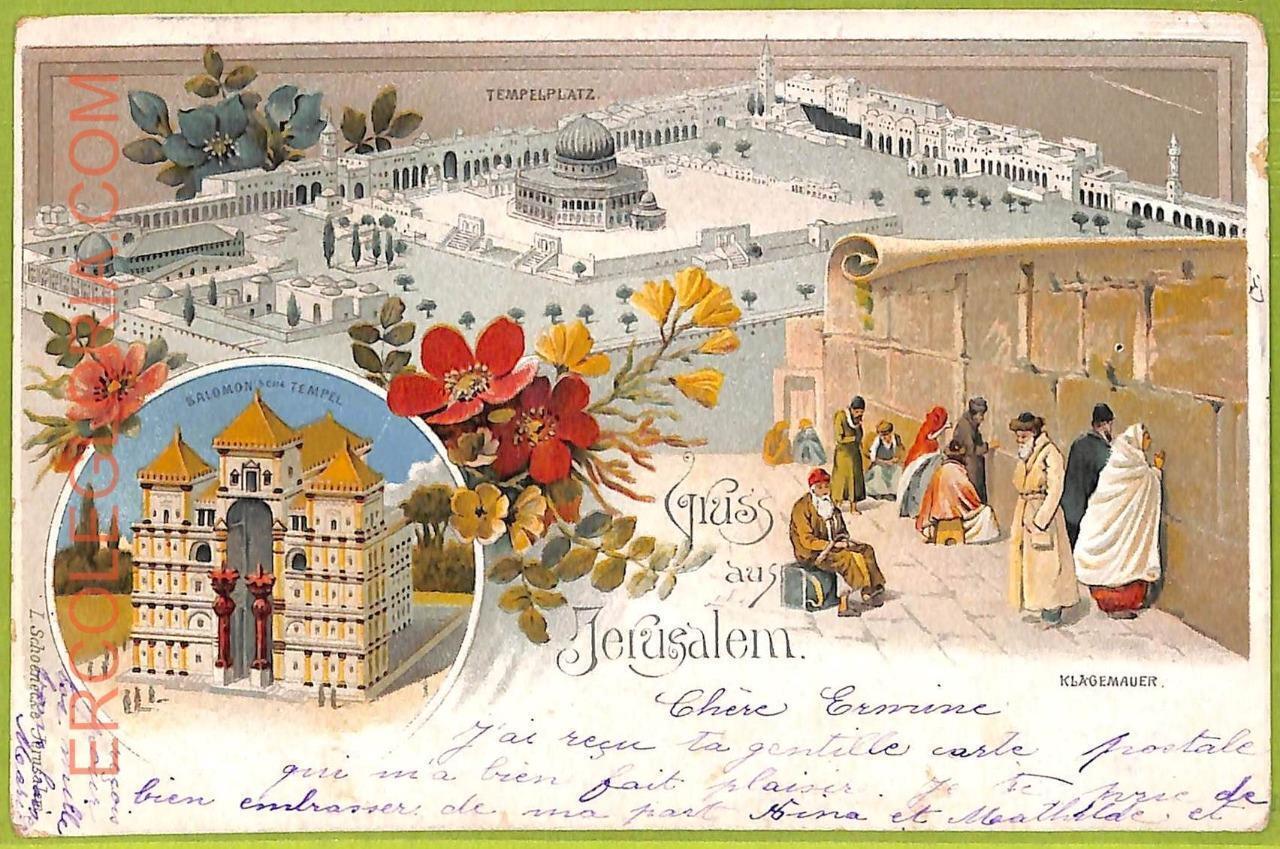 TEMPELPLATZ.
SALOMON'SCHE TEMPEL
Gruss
aus
Jerusalem.
KLAGEMAUER.
Chère Ermine
J'ai reçu ta gentille carte postale
qui m'a bien fait plaisir. Je te prie de
bien embrasser de ma part Nina et Mathilde et
mille
Marie
ERCOLEGLORIA.COM